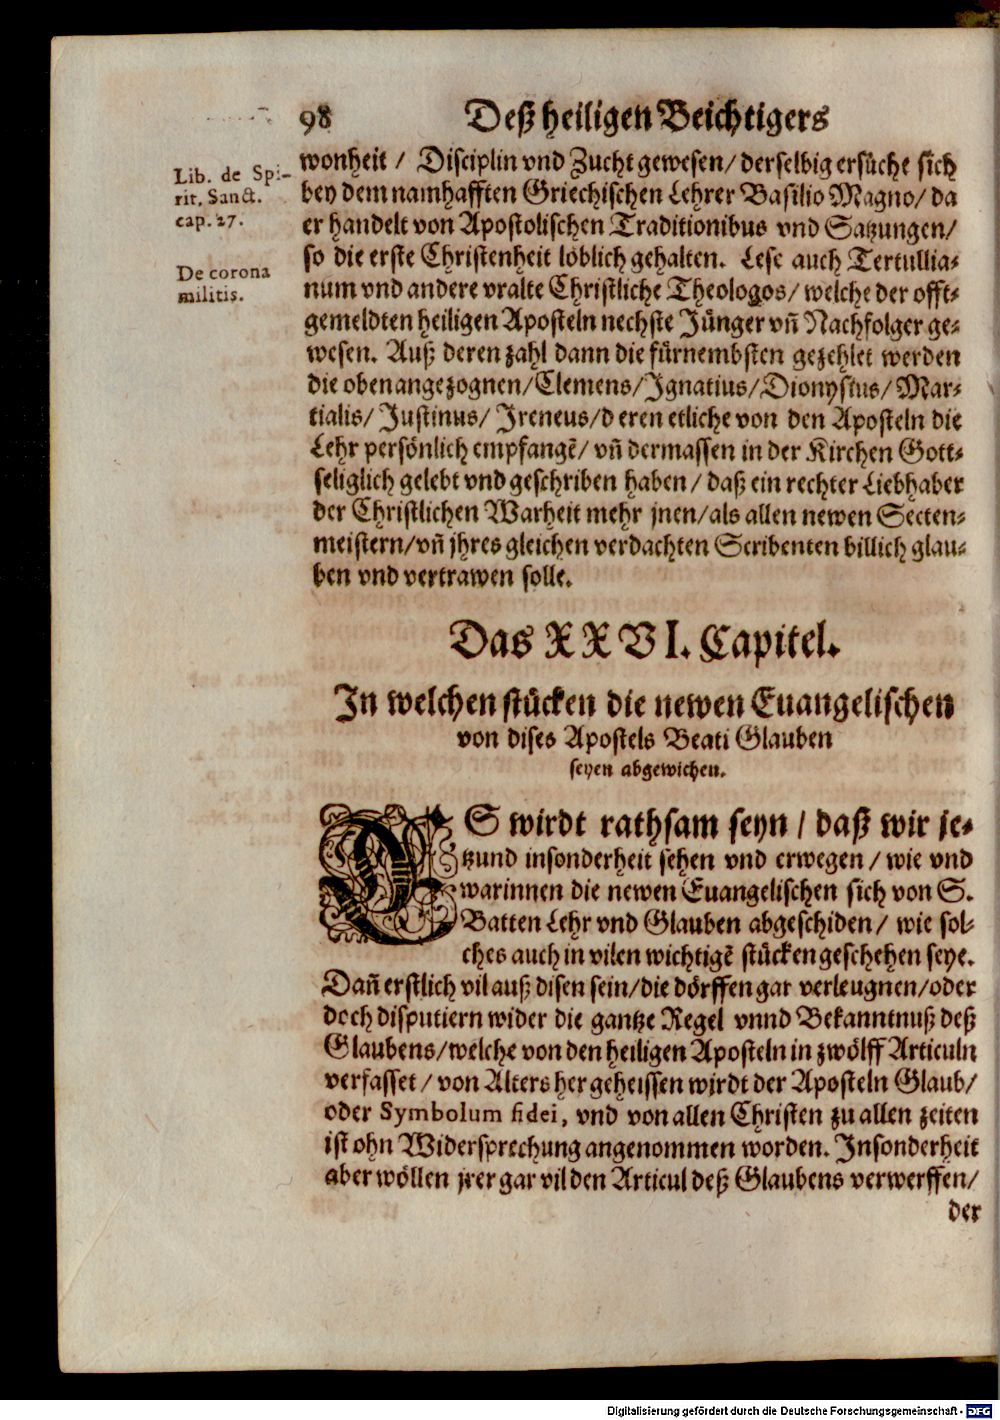 98 Deß heiligen Beichtigers
wonheit / Disciplin vnd Zucht gewesen/ derselbig ersüche sich
bey dem namhafften Griechischen Lehrer Basilio Magno/ da
er handelt von Apostolischen Traditionibus vnd Satzungen/
so die erste Christenheit löblich gehalten. Lese auch Tertullia-
num vnd andere vralte Christliche Theologos/ welche der offt-
gemeldten heiligen Aposteln nechste Jünger vñ Nachfolger ge-
wesen. Auß deren zahl dann die fürnembsten gezehlet werden
die oben angezognen/ Clemens/ Ignatius/ Dionysius/ Mar-
tialis/ Justinus/ Ireneus/ deren etliche von den Aposteln die
Lehr persönlich empfangē/ vñ dermassen in der Kirchen Gott-
seliglich gelebt vnd geschriben haben/ daß ein rechter Liebhaber
der Christlichen Warheit mehr jnen/ als allen newen Secten-
meistern/ vñ jhres gleichen verdachten Scribenten billich glau-
ben vnd vertrawen solle.
Lib. de Spi-
rit. Sanct.
cap. 27.
De corona
militis.
Das XXVI. Capitel.
In welchen stücken die newen Euangelischen
von dises Apostels Beati Glauben
seyen abgewichen.
ES wirdt rathsam seyn / daß wir je-
tzund insonderheit sehen vnd erwegen / wie vnd
warinnen die newen Euangelischen sich von S.
Batten Lehr vnd Glauben abgeschiden / wie sol-
ches auch in vilen wichtigē stücken geschehen seye.
Dañ erstlich vil auß disen sein/ die dörffen gar verleugnen/ oder
doch disputiern wider die gantze Regel vnnd Bekanntnuß deß
Glaubens/ welche von den heiligen Aposteln in zwölff Articuln
verfasset / von Alters her geheissen wirdt der Aposteln Glaub/
oder Symbolum fidei, vnd von allen Christen zu allen zeiten
ist ohn Widersprechung angenommen worden. Insonderheit
aber wöllen jrer gar vil den Articul deß Glaubens verwerffen/
der
Digitalisierung gefördert durch die Deutsche Forschungsgemeinschaft - DFG